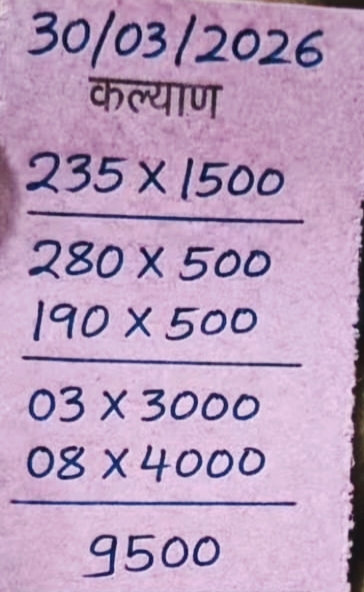 30/03/2026
कल्याण
235 X 1500
280 X 500
190 X 500
03 X 3000
08 X 4000
9500